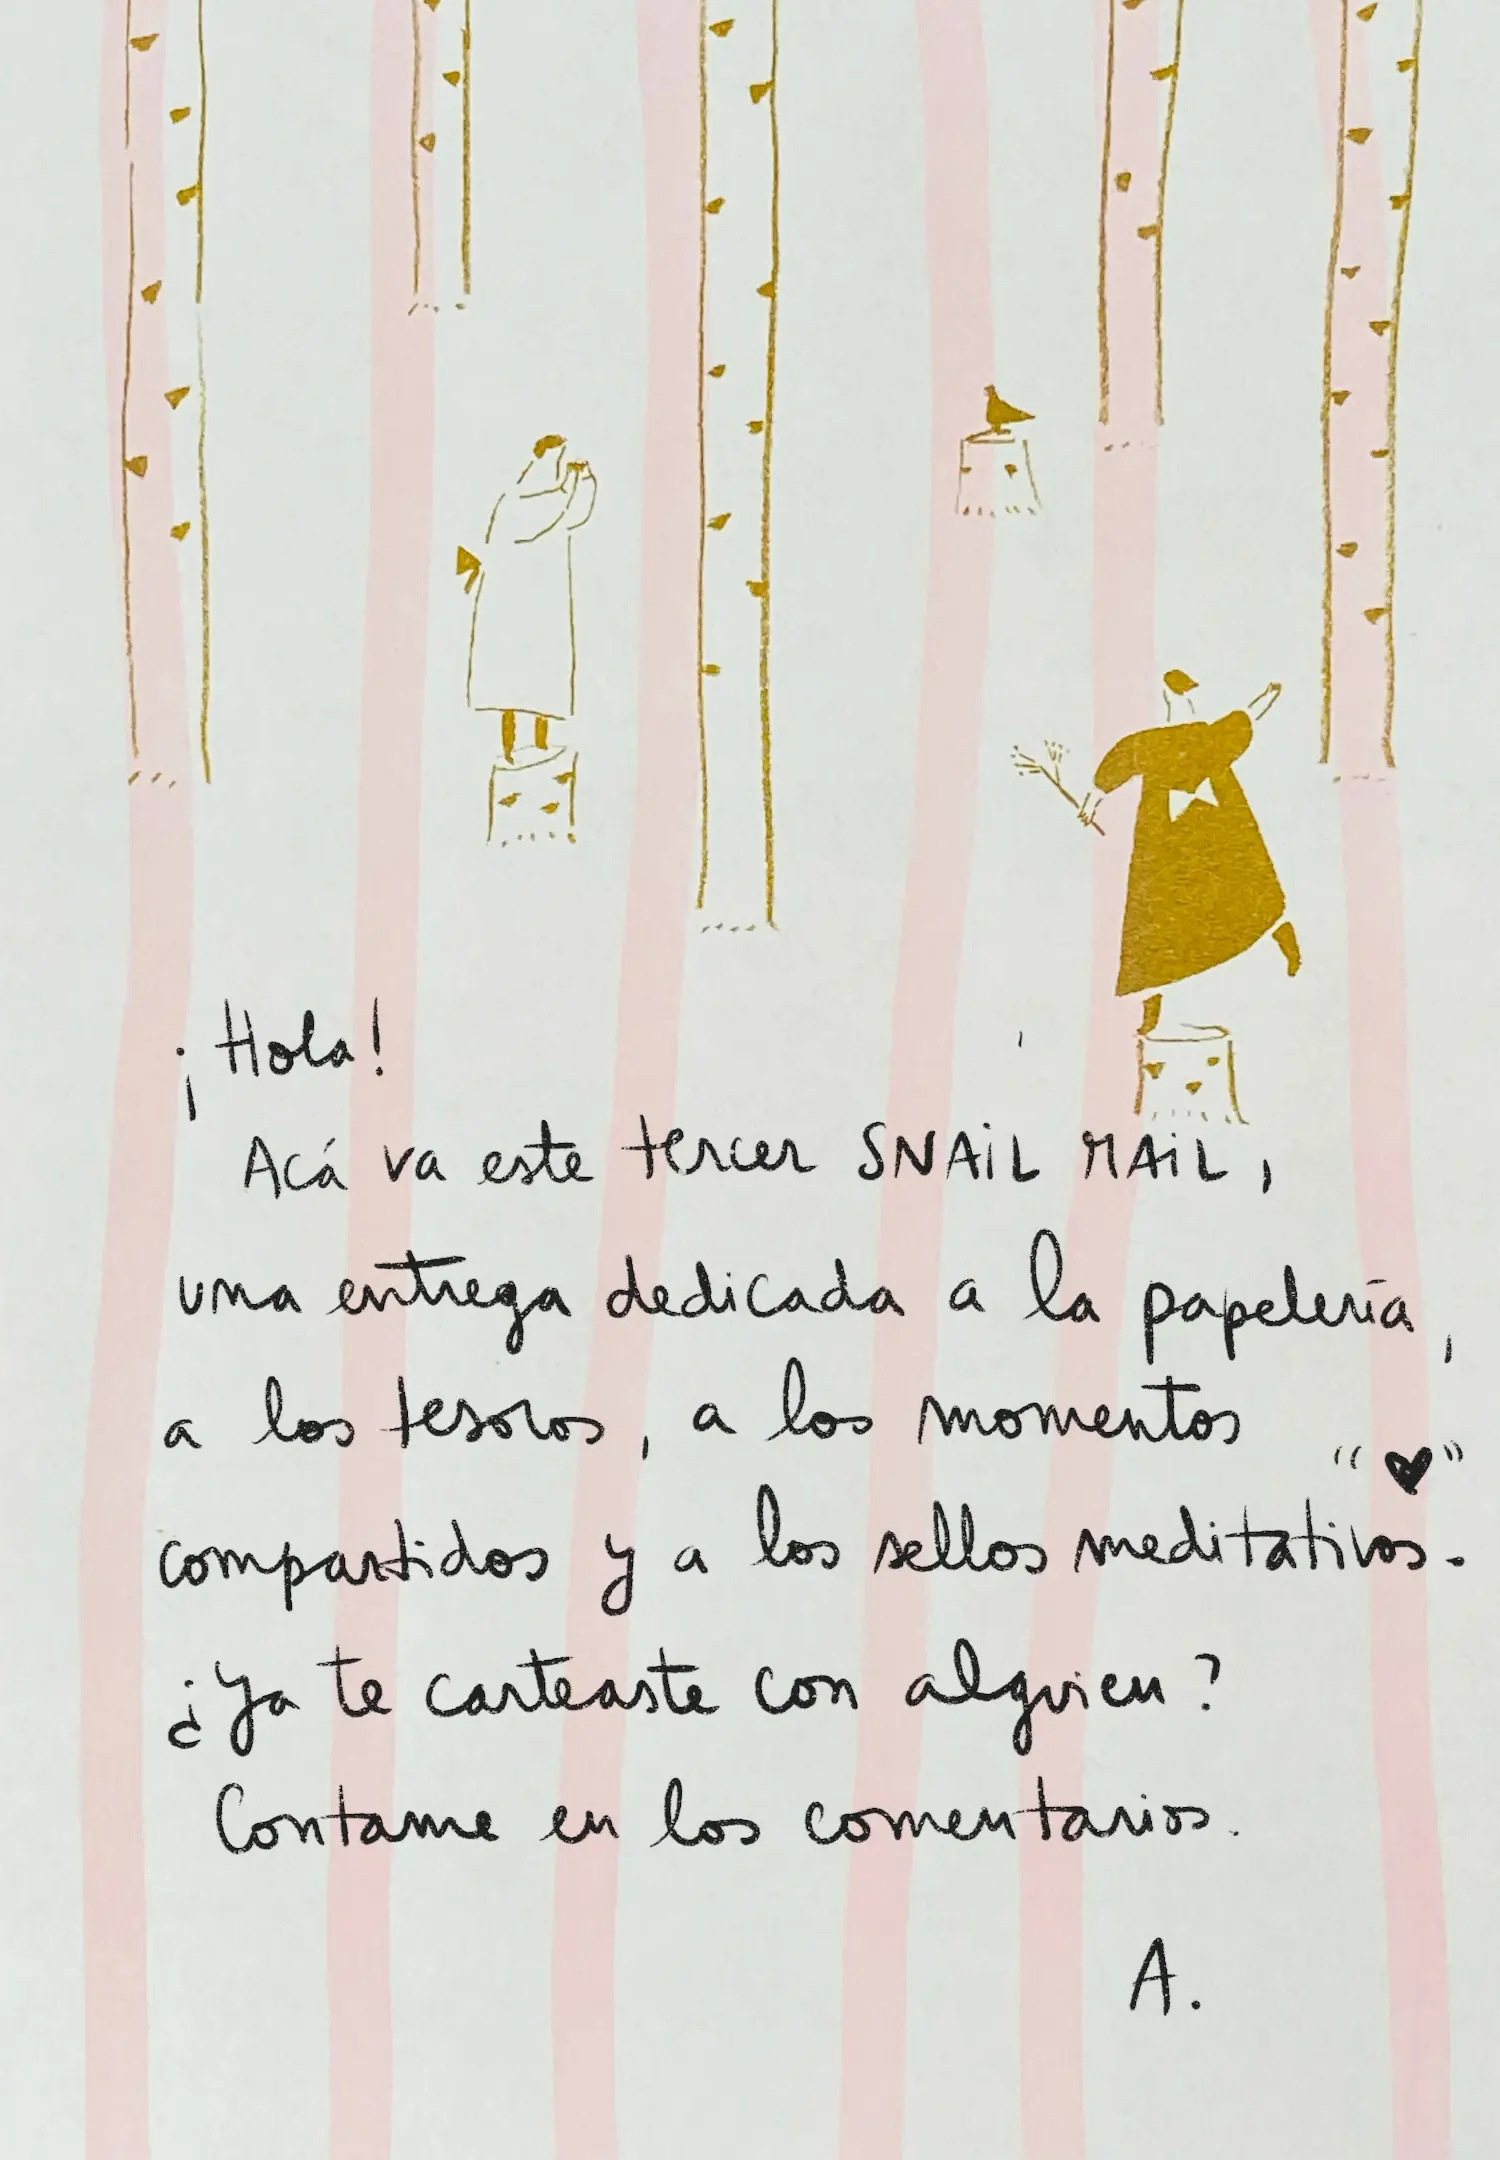 ¡Hola!
Acá va este tercer SNAiL MAiL,
una entrega dedicada a la papelería,
a los tesoros, a los momentos
compartidos y a los sellos meditativos.
¿Ya te carteaste con alguien?
Contame en los comentarios.
A.